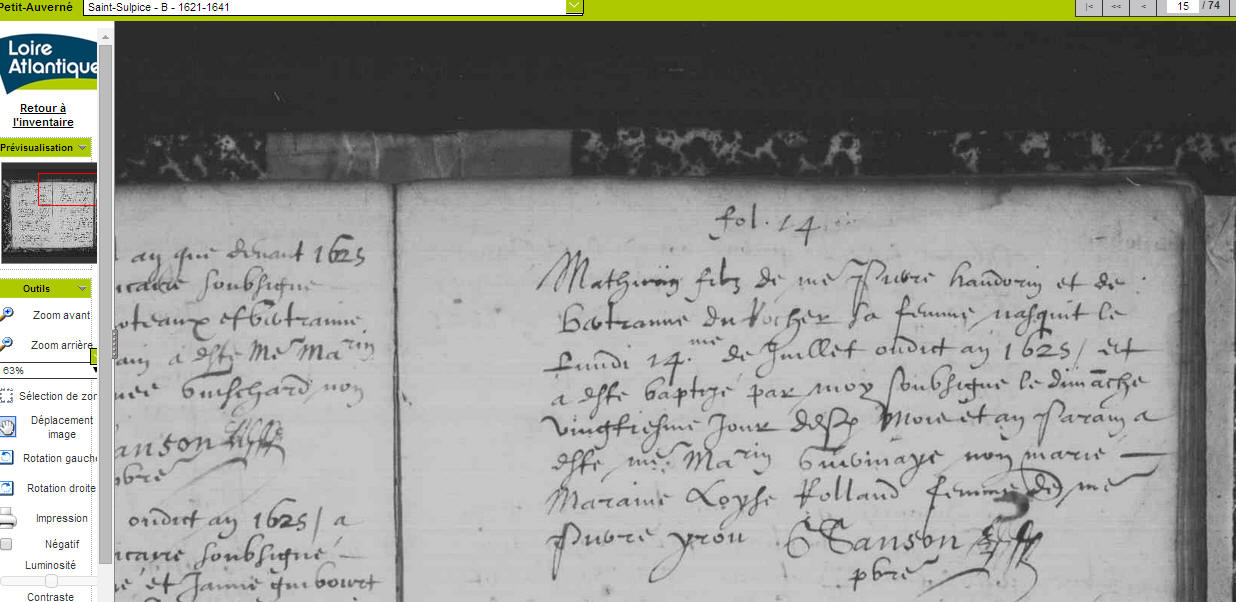 Petit-Auverné
Saint-Sulpice - B - 1621-1641
|<
<<
<
15
/ 74
Loire
Atlantique
Retour à
l'inventaire
Prévisualisation
Outils
Zoom avant
Zoom arrière
63%
Sélection de zon
Déplacement
image
Rotation gauche
Rotation droite
Impression
Négatif
Luminosité
Contraste
an que devant 1625
soubsigne
et
a este Me Marin
non
anson
pbre
oudict an 1625 / a
soubsigné
et Janne guibourt
fol. 14
Mathurin filz de me Pierre haudorin et de
du Rocher sa femme nasquit le
Lundi 14.me de Juillet oudict an 1625 / et
a este baptizé par moy soubsigne le dimāche
vingtiesme Jour mois et an Parain a
este me Marin non marié
Maraine Loyse Rolland femme de me
Pierre yrou Sanson
pbre